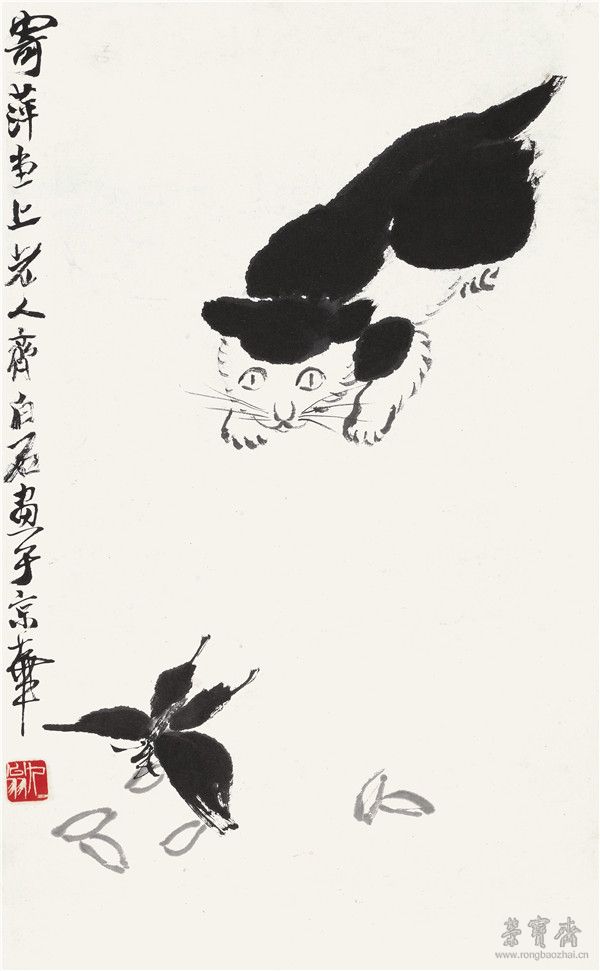 寄萍堂上老人齊白石畫于京華
榮寶齋
www.rongbaozhai.cn